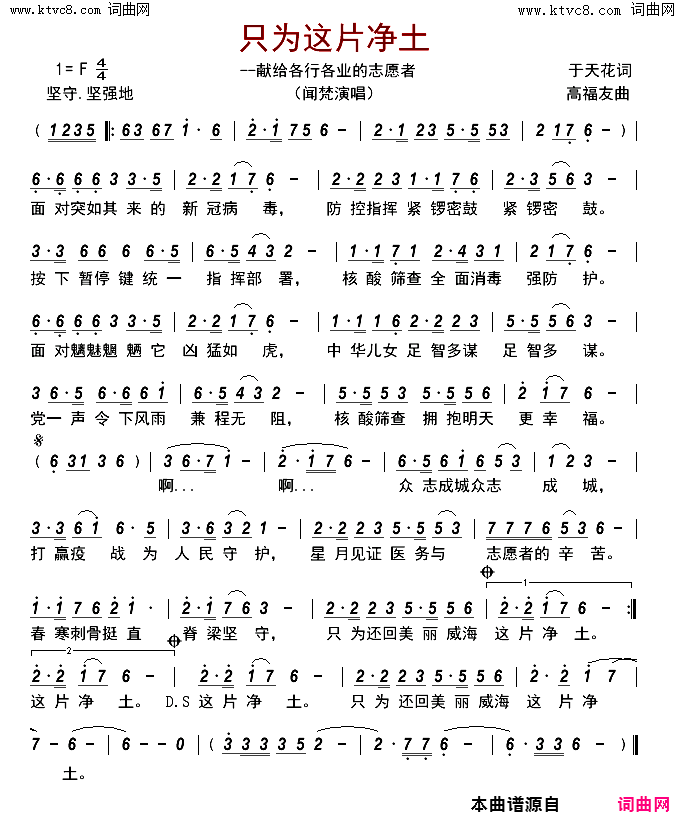 www.ktvc8.com 词曲网
www.ktvc8.com 词曲网
只为这片净土
1=F 4/4
--献给各行各业的志愿者
于天花词
坚守.坚强地
(闻梵演唱)
高福友曲
(1235 ‖: 63 67 1·6 | 2·1 75 6 - | 2·1 23 5·5 53 | 2 17 6 -) |
6·6 6 6 3 3·5 | 2·2 17 6 - | 2·2 23 5·5 56 | 2·3 56 3 - |
面对突如其来的 新冠病毒, 防控指挥紧锣密鼓 紧锣密鼓。
3·3 66 6 6·5 | 6·5 43 2 - | 1·1 71 2·4 31 | 2 17 6 - |
按下暂停键统一 指挥部署, 核酸筛查全面消毒 强防护。
6·6 666 3 3·5 | 2·2 17 6 - | 2·1 76 2·2 23 | 5·5 56 3 - |
面对魑魅魍魉它 凶猛如虎, 中华儿女足智多谋 足智多谋。
3 6·5 6·6 61 | 6·5 43 2 - | 5·5 53 6·5 61 | 2 17 6 - |
党一声令下风雨 兼程无阻, 核酸筛查拥抱明天 更幸福。
(6 31 3 6) | 3 6·7 1 - | 2·17 6 - | 6·5 61 65 53 | 1 2 3 - |
啊... 啊... 众志成城众志 成城,
3·3 61 6·5 | 3·6 32 3 - | 5·5 53 2·3 5 | 7776 53 6 |
打赢疫战为 人民守护, 星月见证医务与 志愿者的辛苦。
1
1·1 76 21 | 2·1 76 3 - | 3·3 23 5·5 56 | 2·2 17 6 - :‖
春寒刺骨挺直 脊梁坚守, 只为还回美丽威海 这片净土。
2
2·2 17 6 - | 2·2 17 6 - | 3·3 23 5·5 56 | 2·2 1 7 |
这片净土。 D.S 这片净土。 只为还回美丽威海 这片净
7 - 6 - | 6 - - 0 | (3 333 5 2 - | 2·7 7 6 - | 6·3 33 6 -) ‖
土。
本曲谱源自
词曲网